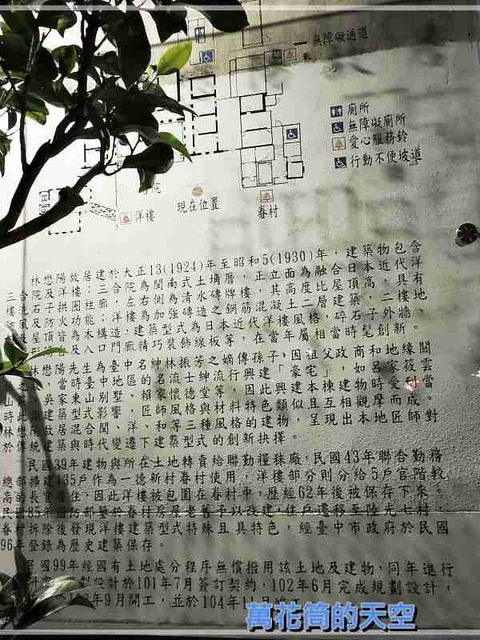 無障礙通道
廁所
無障礙廁所
愛心服務鈴
行動不便坡道
院
洋樓
現在位置
眷村
林懋陽故居建於大正13(1924)年至昭和5(1930)年,建築物包含
三合院及洋樓,三合院為閩南式土埆厝,正立面為融合日本近代洋
風及防火功能,洋樓為加強磚造之鋼筋混凝土二層建築,二樓地
林懋陽先生為臺中名紳林振芳之嫡傳孫子,因祖父政商和地緣關
當時臺中地區的名流士紳流行興建「豪宅」,如呂家筱雲
山吳家東山別墅、賴家懷德堂等,因此興建本棟建物時受到當
時建築型式影響,匠師風格與材料特色類似且互相觀摩而成。
林懋陽故居混合閩、洋、和等三種風格的建物,呈現出本地匠師對
於傳統建築與時代變遷下建築型式的創新抉擇。
民國39年建物與所在土地轉賣給聯勤糧秣廠,民國43年聯合勤務
總部擴建135戶作為一德新村眷村使用,洋樓部分則分給5戶官階較
高的長官居住,因此洋樓被包圍在眷村中,歷經62年後被保存下來。
民國85年國防部鑒於眷村房屋老舊予以改建,住戶遷移至陸光七村,
眷村拆除後發現洋樓建築型式特殊且具特色,經臺中市政府於民國
96年登錄為歷史建築保存。
民國99年經國有土地處分程序無償撥用該土地及建物,同年進行
設計於101年7月簽訂契約,102年6月完成規劃設計,
年9月開工,並於104年11月
萬花筒的天空